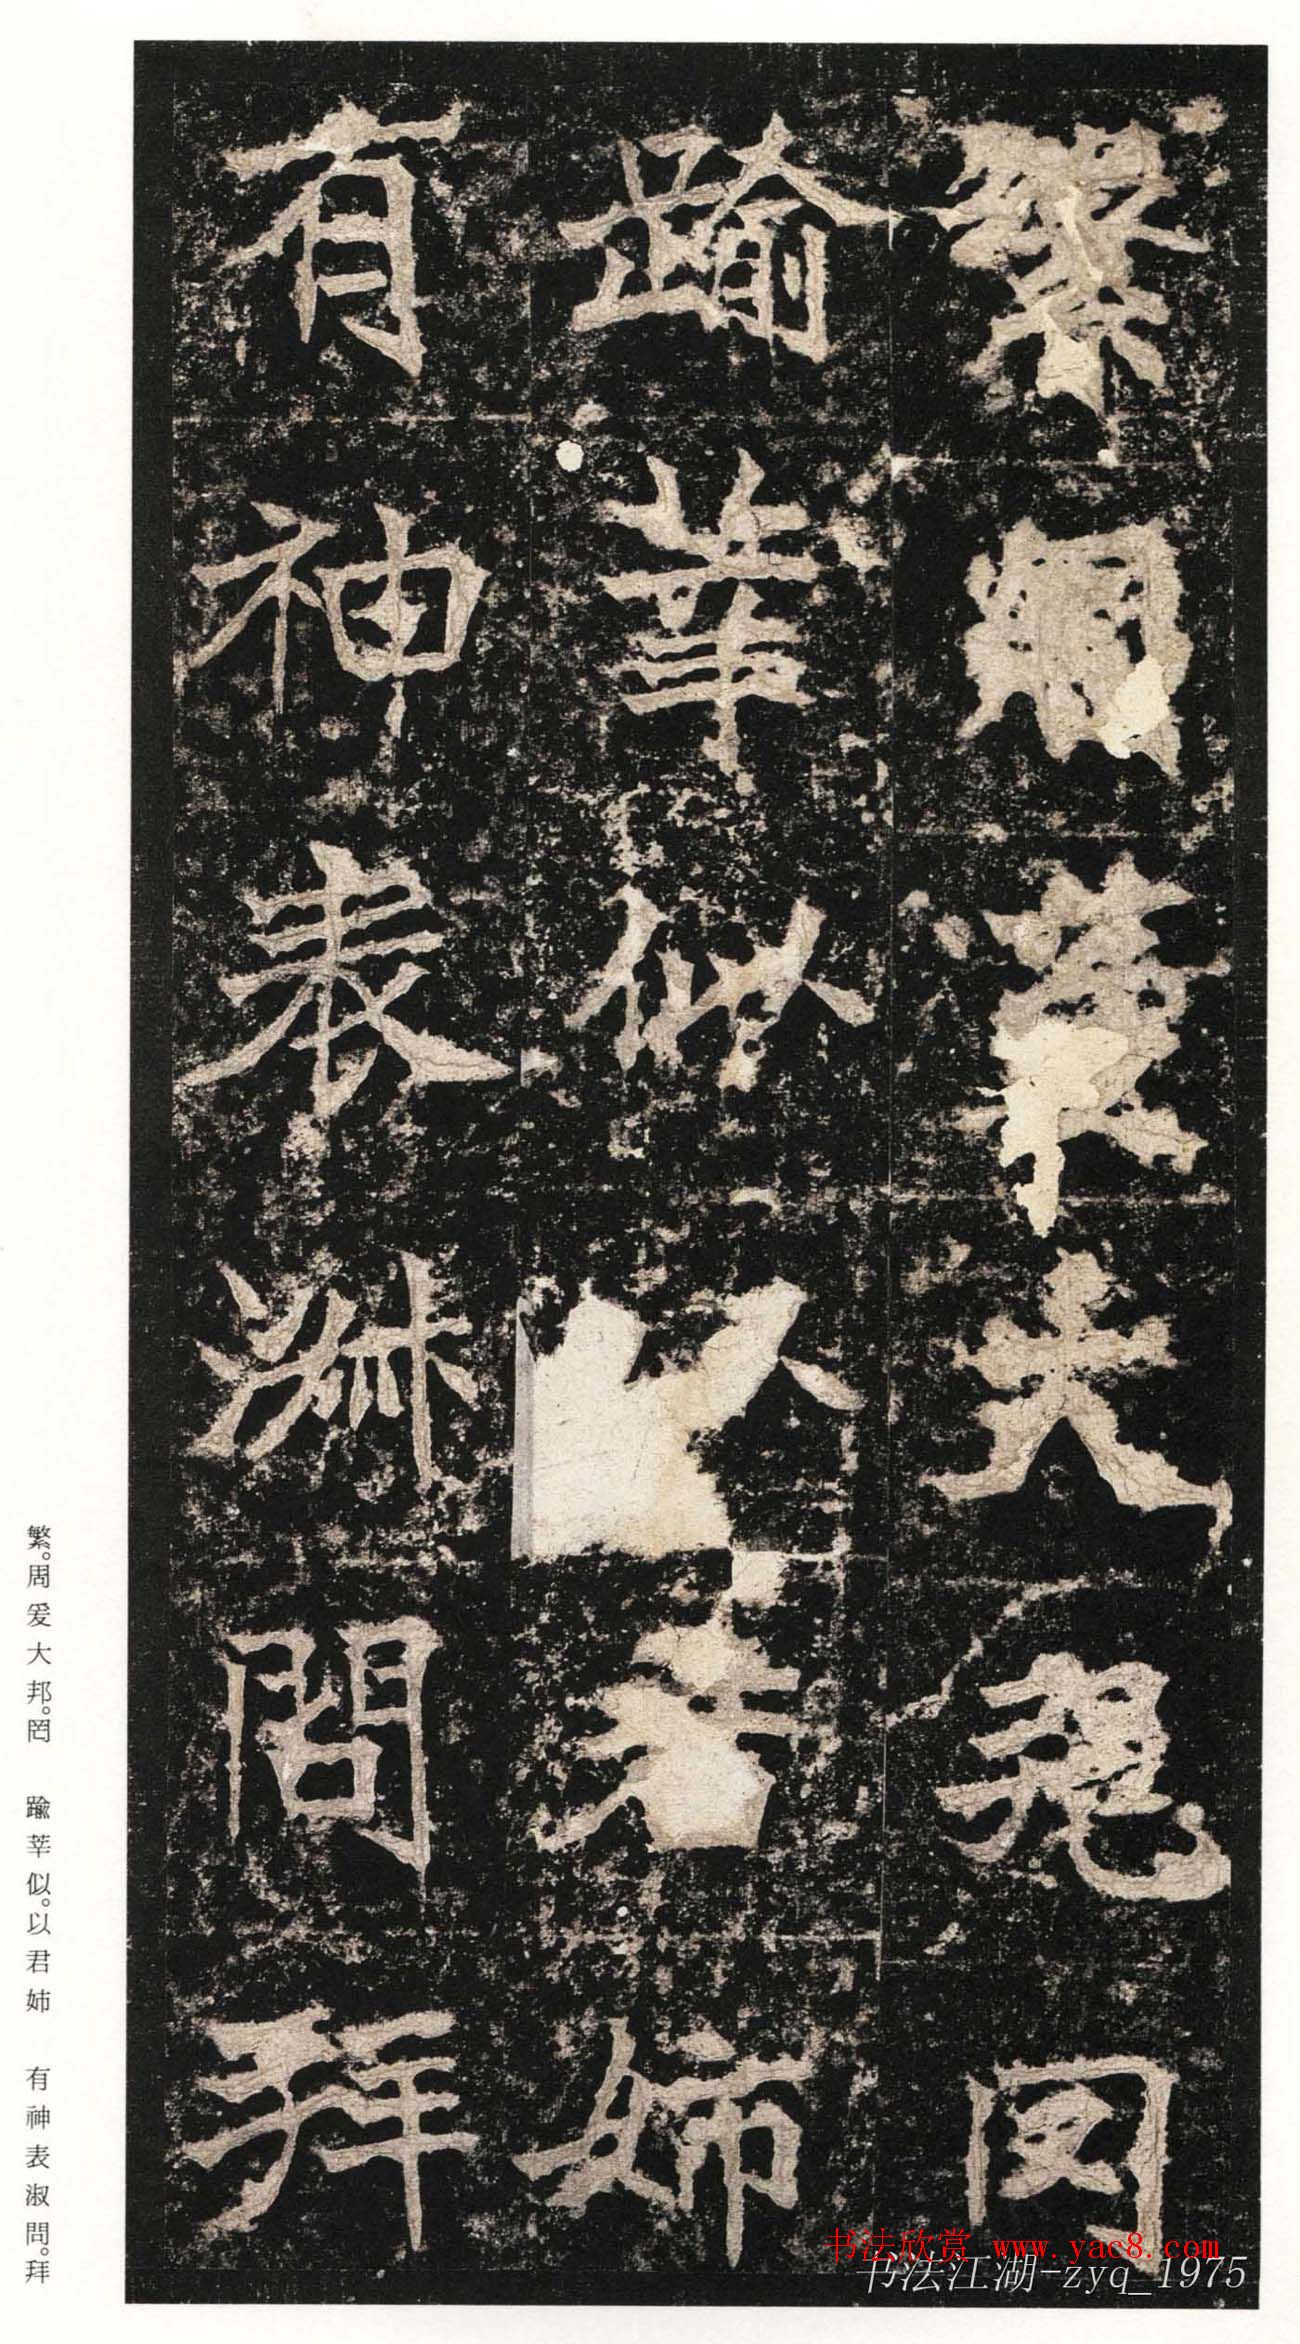 繁周爰大邦罔
踰莘似以君姉
有神表淑問拜
繁。周爰大邦。罔　踰莘似。以君姉　有神表淑問。拜
书法欣赏 www.yac8.com
书法江湖-zyq_1975